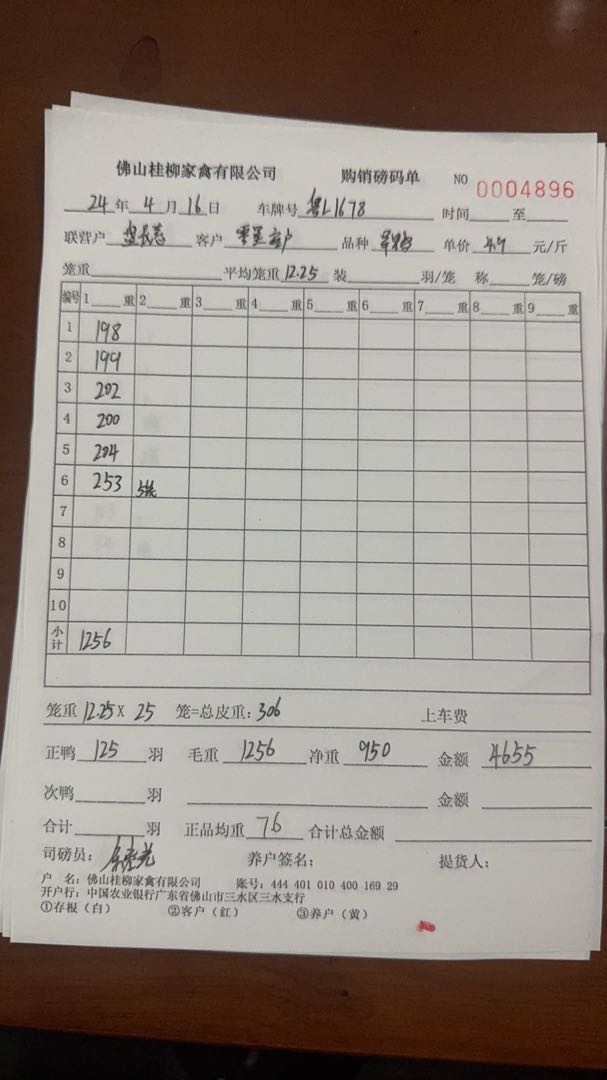 佛山桂柳家禽有限公司 购销磅码单 NO 0004896
24年4月16日 车牌号 粤L1678 时间 至
联营户 客户 品种 单价 4.9 元/斤
笼重 平均笼重 12.25 装 羽/笼 称 笼/磅
编号 1 重 2 重 3 重 4 重 5 重 6 重 7 重 8 重 9 重
1 198
2 199
3 202
4 200
5 204
6 253 5笼
7
8
9
10
小计 1256
笼重 12.25 X 25 笼=总皮重: 306 上车费
正鸭 125 羽 毛重 1256 净重 950 金额 4655
次鸭 羽 金额
合计 羽 正品均重 7.6 合计总金额
司磅员: 养户签名: 提货人:
户 名: 佛山桂柳家禽有限公司 账号: 444 401 010 400 169 29
开户行: 中国农业银行广东省佛山市三水区三水支行
①存根(白) ②客户(红) ③养户(黄)